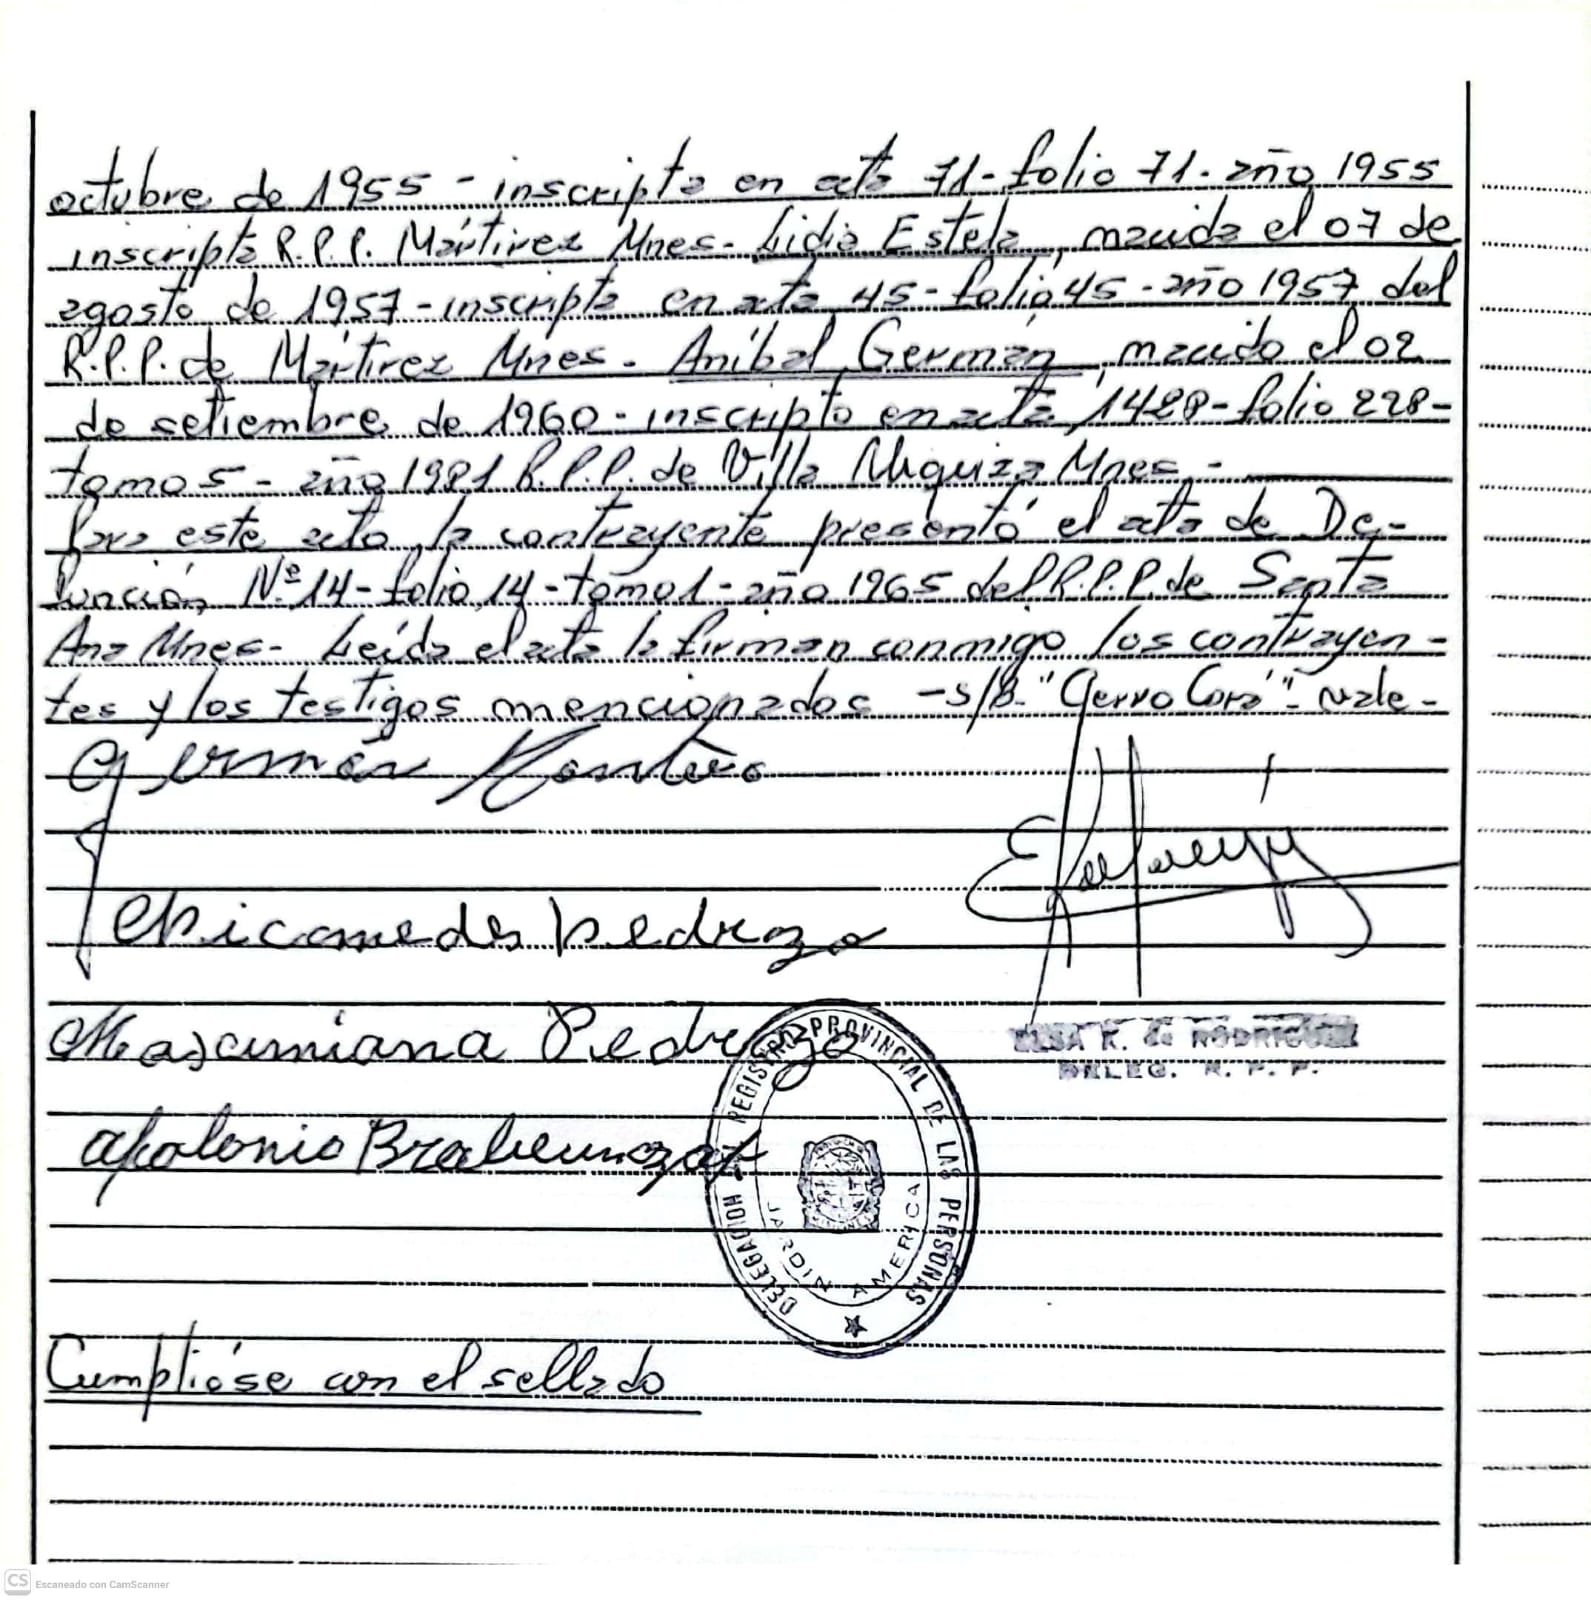 octubre de 1955 - inscripta en acta 71 - folio 71 - año 1955
inscripta R.P.P. Mártirez Mnes - Lidia Estela, nacida el 07 de
agosto de 1957 - inscripta en acta 45 - folio 45 - año 1957 del
R.P.P. de Mártirez Mnes - Aníbal Germán, nacido el 02
de setiembre de 1960 - inscripto en acta 1428 - folio 228 -
tomo 5 - año 1981 R.P.P. de Villa Urquiza Mnes -
Para este acto, la contrayente presentó el acta de De-
función Nº 14 - folio 14 - tomo 1 - año 1965 del R.P.P. de Santa
Ana Mnes - Leída el acta la firman conmigo los contrayen-
tes y los testigos mencionados - S/B "Cerro Corá" - vale -
Germán
Nicomedes Pedrozo
Pedrozo
Apolonio
ELSA K. de RODRIGUEZ
DELEG. R. P. P.
DELEGACION DEL REGISTRO PROVINCIAL DE LAS PERSONAS
JARDIN AMERICA
Cumplióse con el sellado
CS Escaneado con CamScanner